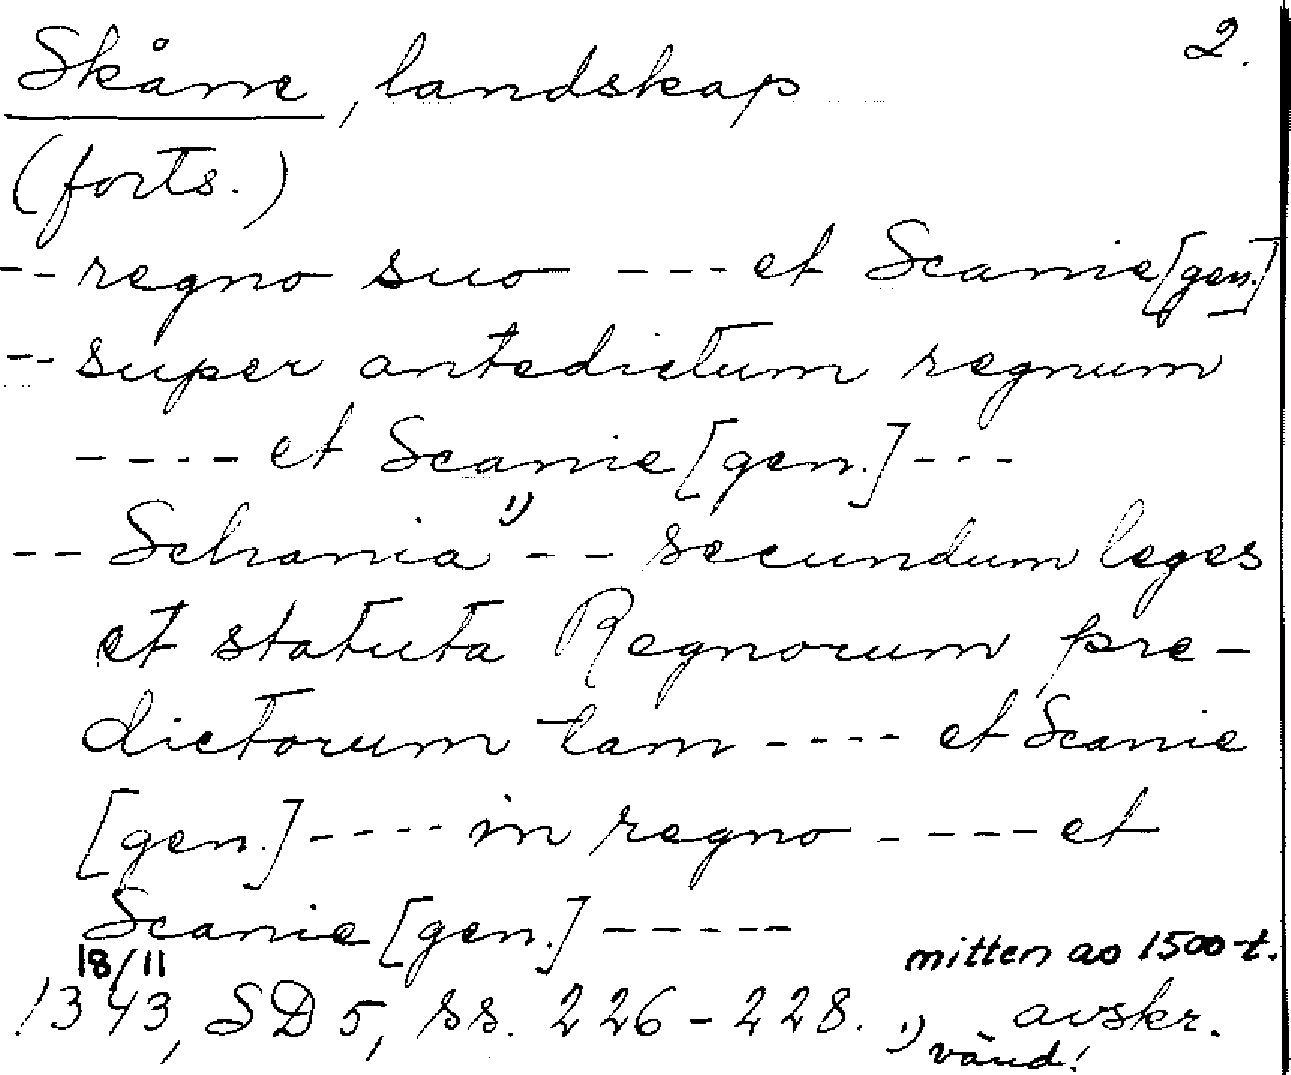 2.
Skåne, landskap
(forts.)
-- regno suo --- et Scanie [gen.]
-- super antedictum regnum
---- et Scanie [gen.] ---
-- Schania 1) -- secundum leges
et statuta Regnorum pre-
dictorum tam ---- et Scanie
[gen.] ---- in regno ---- et
Scanie [gen.] -----
18/11 mitten av 1500-t.
1343, SD 5, ss. 226-228. avskr.
1) vänd!